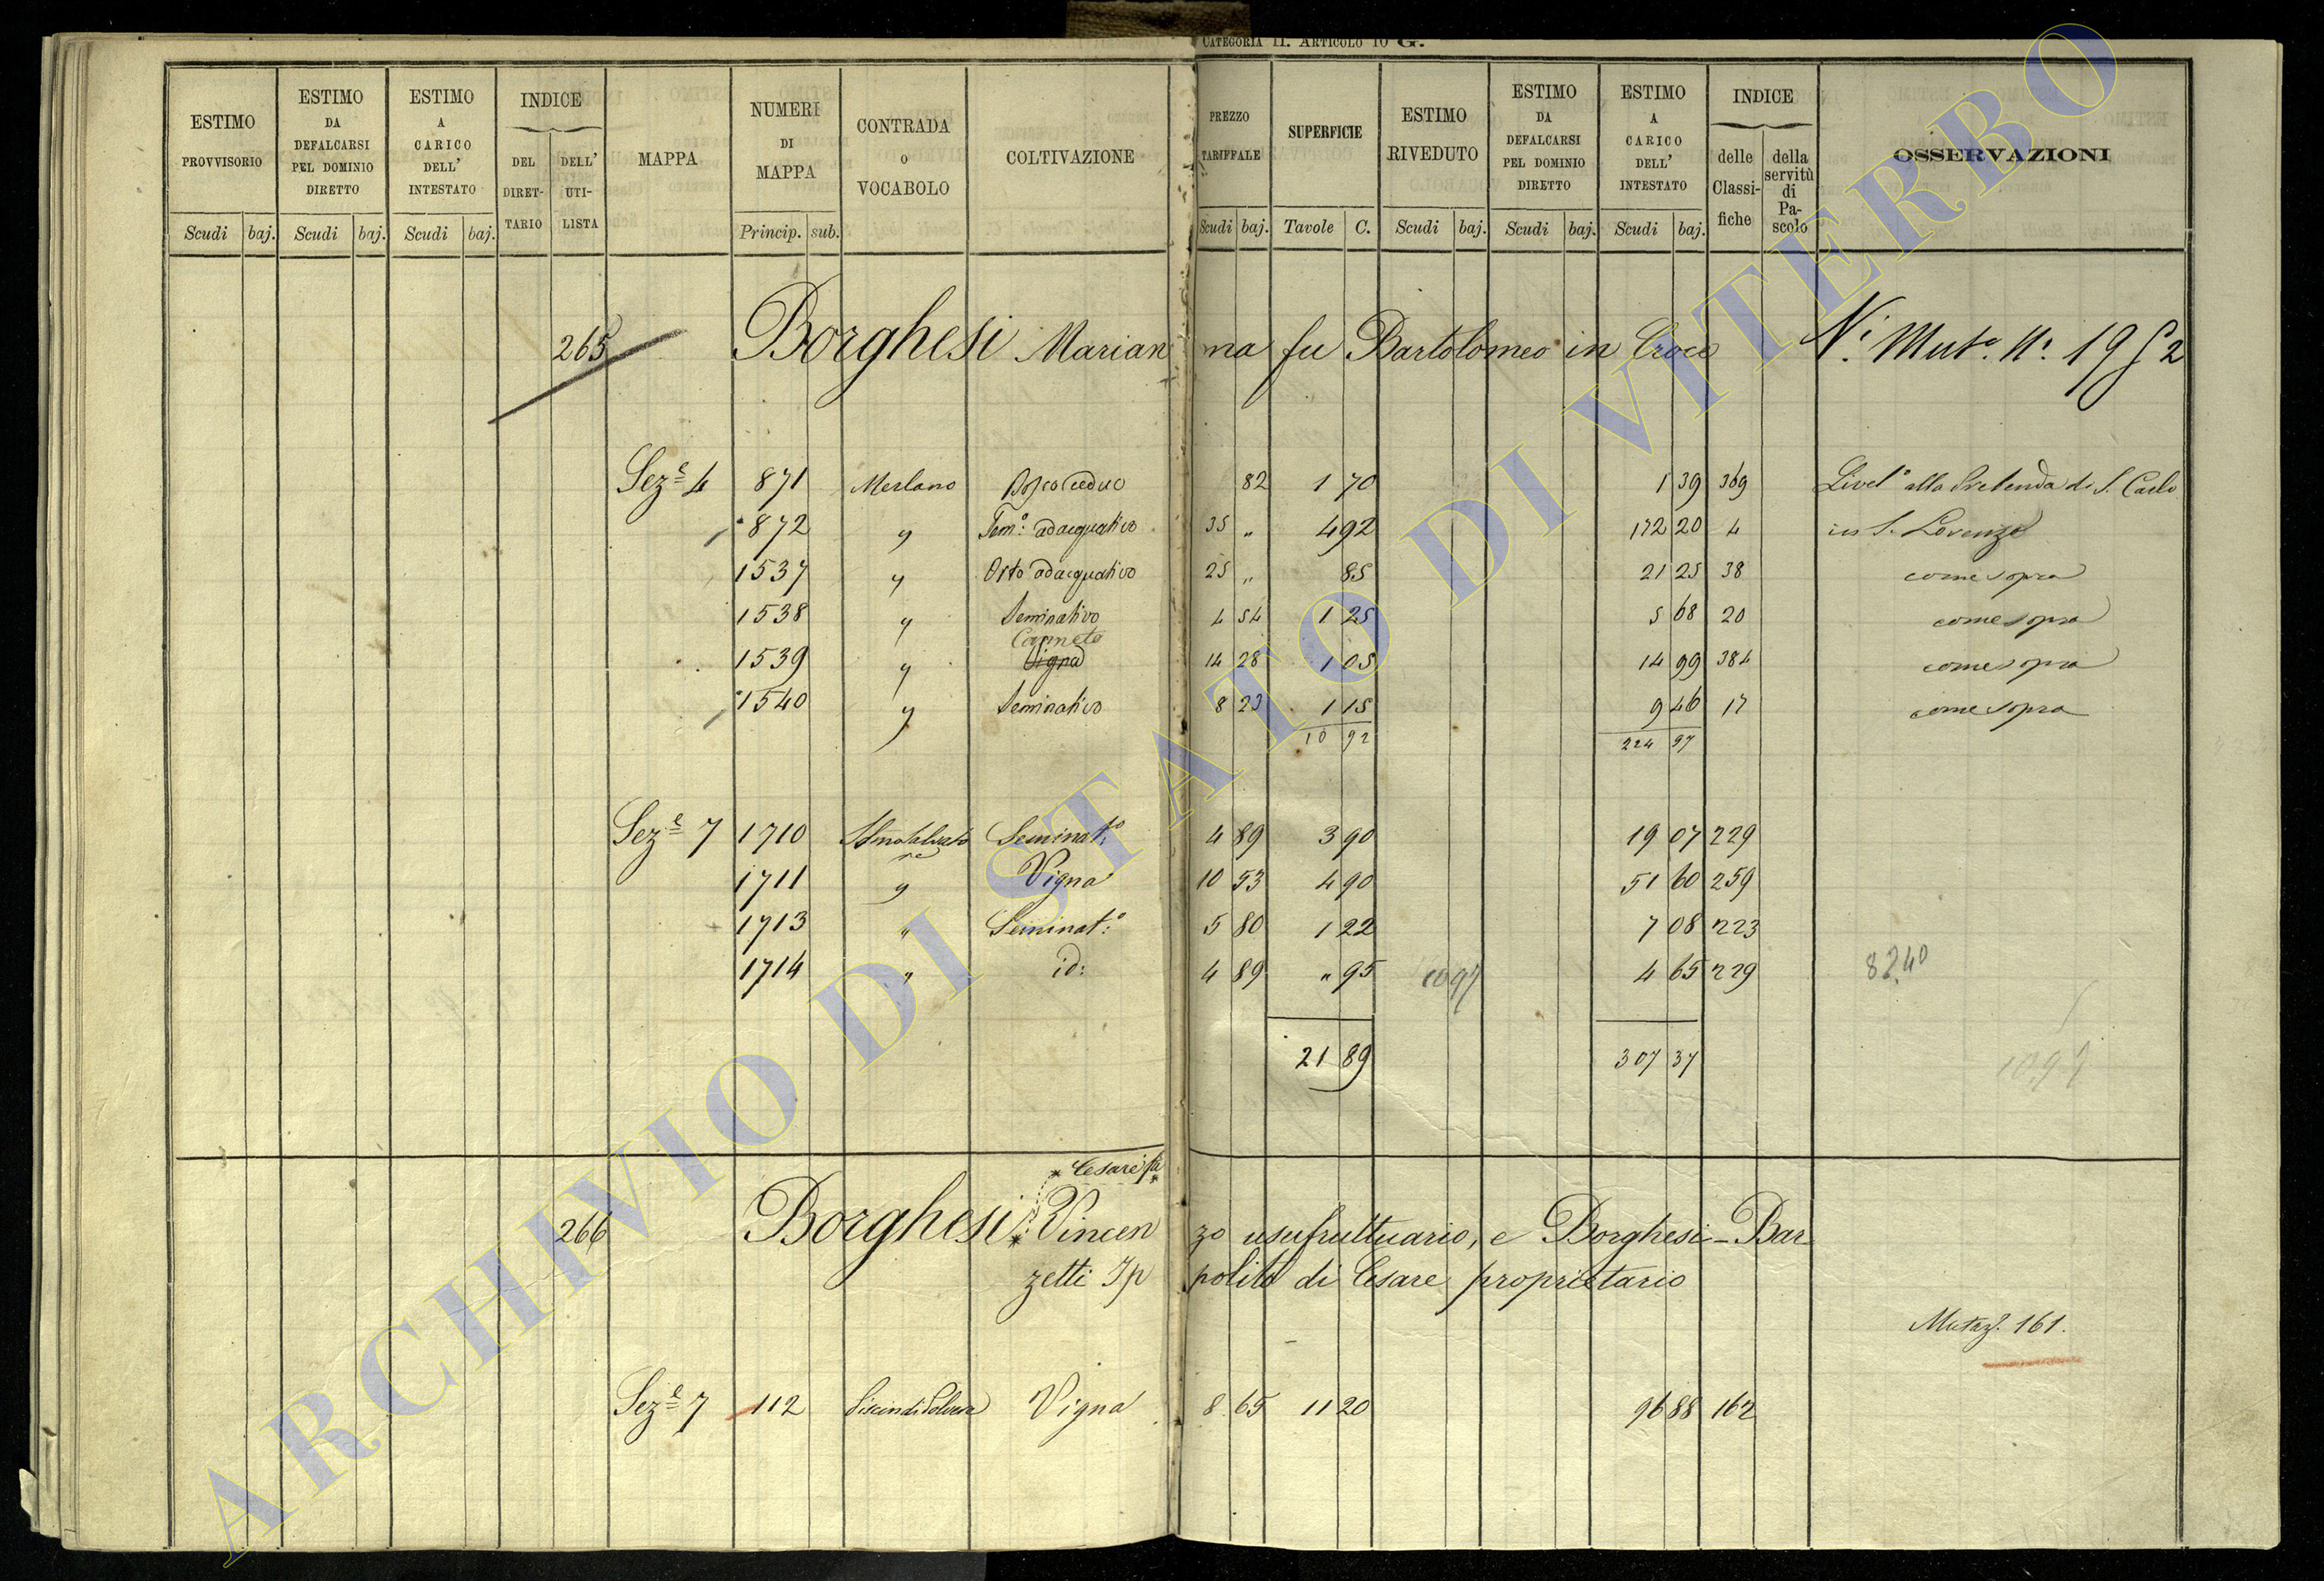 CATEGORIA II. ARTICOLO 10 G.
ESTIMO PROVVISORIO
ESTIMO DA DEFALCARSI PEL DOMINIO DIRETTO
ESTIMO A CARICO DELL' INTESTATO
INDICE
DEL DIRET-TARIO
DELL' UTI-LISTA
MAPPA
NUMERI DI MAPPA
CONTRADA O VOCABOLO
COLTIVAZIONE
PREZZO TARIFFALE
SUPERFICIE
ESTIMO RIVEDUTO
ESTIMO DA DEFALCARSI PEL DOMINIO DIRETTO
ESTIMO A CARICO DELL' INTESTATO
INDICE
delle Classi-fiche
della servitù di Pa-scolo
OSSERVAZIONI
Scudi baj. Scudi baj. Scudi baj. Princip. sub. Scudi baj. Tavole C. Scudi baj. Scudi baj. Scudi baj.
265 Borghesi Marianna fu Bartolomeo in Croce N. Mut. N. 1952
Sez.e 4 871 Merlano Bosco Ceduo 82 1 70 1 39 369 Livel.o alla Prebenda di S. Carlo
872 " Sem.o adacquativo 35 " 4 92 172 20 4 in S. Lorenzo
1537 " Orto adacquativo 25 " 85 21 25 38 come sopra
1538 " Seminativo 4 54 1 25 5 68 20 come sopra
Canneto
1539 " Vigna 14 28 1 05 14 99 384 come sopra
1540 " Seminativo 8 23 1 15 9 46 17 come sopra
10 92 224 97
Sez.e 7 1710 Seminat.o 4 89 3 90 19 07 229
1711 " Vigna 10 53 4 90 51 60 259
1713 " Seminat.o 5 80 1 22 7 08 223
1714 " id: 4 89 " 95 1097 4 65 229 82.40
21 89 307 37
1097
* Cesare fu *
266 Borghesi * Vincenzo usufruttuario, e Borghesi-Bar
zetti Ippolito di Cesare proprietario
Mutaz. 161.
Sez.e 7 112 Vigna 8 65 11 20 96 88 162
ARCHIVIO DI STATO DI VITERBO